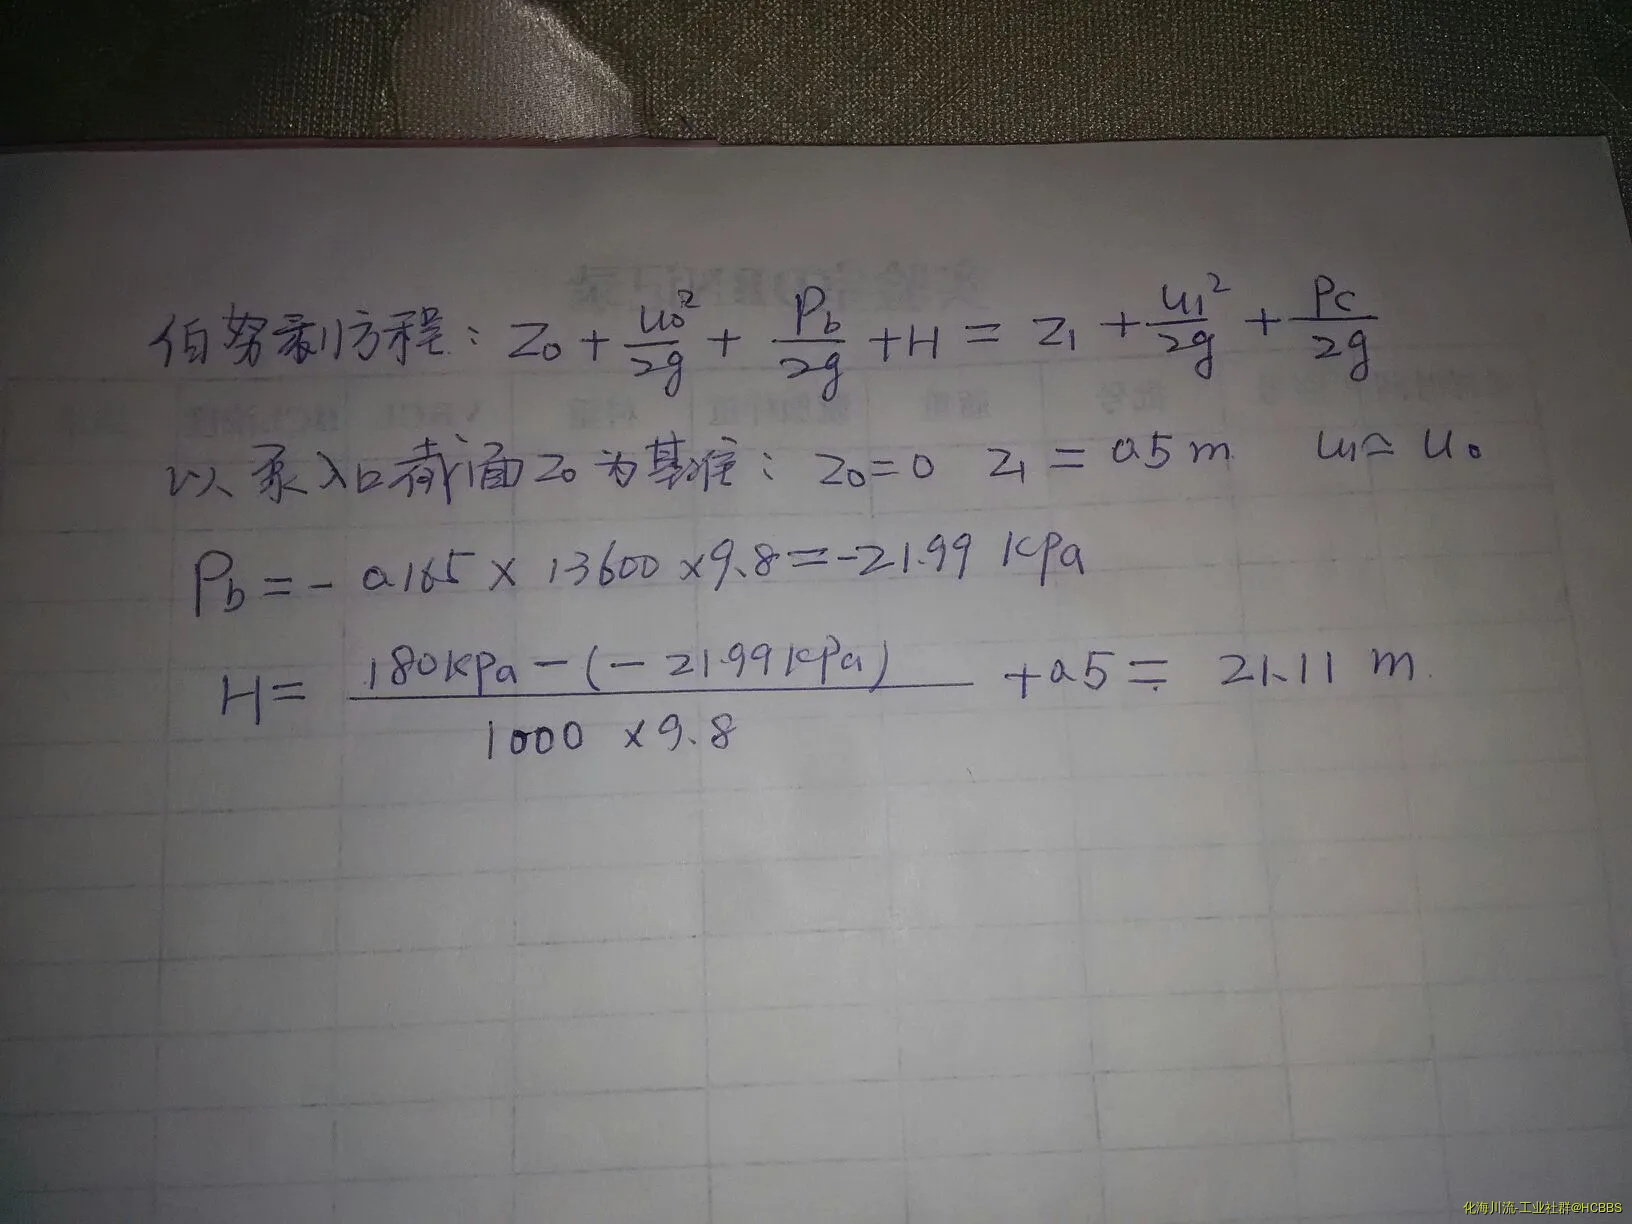 伯努利方程: Z₀ + u₀²/2g + P_b/2g + H = Z₁ + u₁²/2g + P_C/2g
以泵入口截面Z₀为基准: Z₀=0 Z₁ = 0.5 m u₁= u₀
P_b = - 0.165 × 13600 × 9.8 = -21.99 KPa
H = 180KPa - (- 21.99KPa) / 1000 × 9.8 + 0.5 = 21.11 m.
化海川流-工业社群@HCBBS